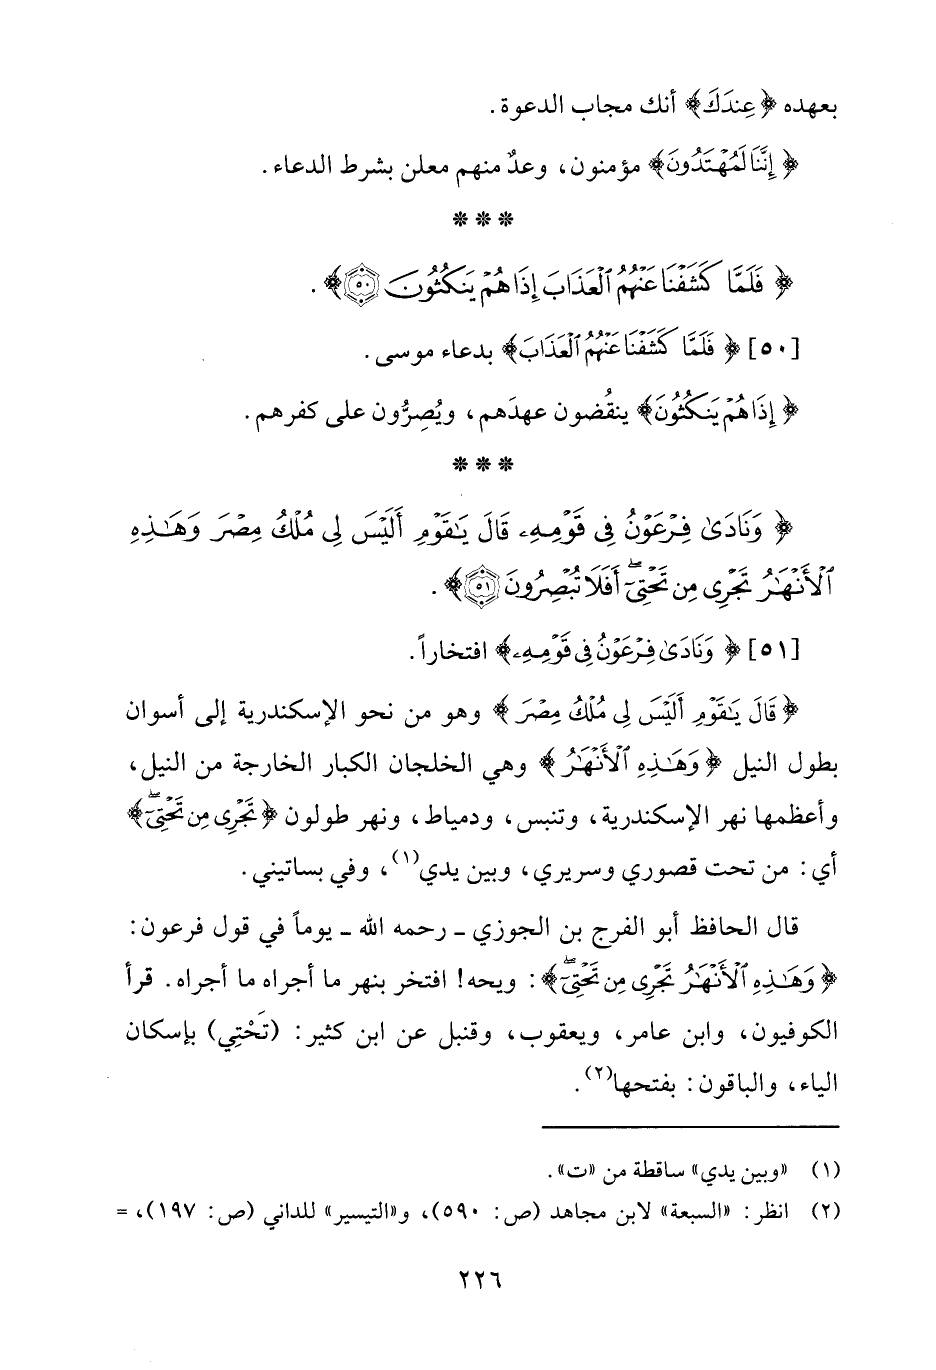 بعهده ﴿عِندَكَ﴾ أنك مجاب الدعوة.
﴿إِنَّنَا لَمُهْتَدُونَ﴾ مؤمنون، وعدٌ منهم معلن بشرط الدعاء.
***
﴿فَلَمَّا كَشَفْنَا عَنْهُمُ ٱلْعَذَابَ إِذَا هُمْ يَنكُثُونَ ٥٠﴾.
[٥٠] ﴿فَلَمَّا كَشَفْنَا عَنْهُمُ ٱلْعَذَابَ﴾ بدعاء موسى.
﴿إِذَا هُمْ يَنكُثُونَ﴾ ينقُضون عهدَهم، ويُصِرُّون على كفرهم.
***
﴿وَنَادَىٰ فِرْعَوْنُ فِى قَوْمِهِۦ قَالَ يَٰقَوْمِ أَلَيْسَ لِى مُلْكُ مِصْرَ وَهَٰذِهِ
ٱلْأَنْهَٰرُ تَجْرِى مِن تَحْتِىٓ ۖ أَفَلَا تُبْصِرُونَ ٥١﴾.
[٥١] ﴿وَنَادَىٰ فِرْعَوْنُ فِى قَوْمِهِۦ﴾ افتخاراً.
﴿قَالَ يَٰقَوْمِ أَلَيْسَ لِى مُلْكُ مِصْرَ﴾ وهو من نحو الإسكندرية إلى أسوان
بطول النيل ﴿وَهَٰذِهِ ٱلْأَنْهَٰرُ﴾ وهي الخلجان الكبار الخارجة من النيل،
وأعظمها نهر الإسكندرية، وتنبس، ودمياط، ونهر طولون ﴿تَجْرِى مِن تَحْتِىٓ ۖ﴾
أي: من تحت قصوري وسريري، وبين يدي(١)، وفي بساتيني.
قال الحافظ أبو الفرج بن الجوزي - رحمه الله - يوماً في قول فرعون:
﴿وَهَٰذِهِ ٱلْأَنْهَٰرُ تَجْرِى مِن تَحْتِىٓ ۖ﴾: ويحه! افتخر بنهر ما أجراه ما أجراه. قرأ
الكوفيون، وابن عامر، ويعقوب، وقنبل عن ابن كثير: (تَحْتِي) بإسكان
الياء، والباقون: بفتحها(٢).
(١) «وبين يدي» ساقطة من «ت».
(٢) انظر: «السبعة» لابن مجاهد (ص: ٥٩٠)، و«التيسير» للداني (ص: ١٩٧)، =
٢٢٦